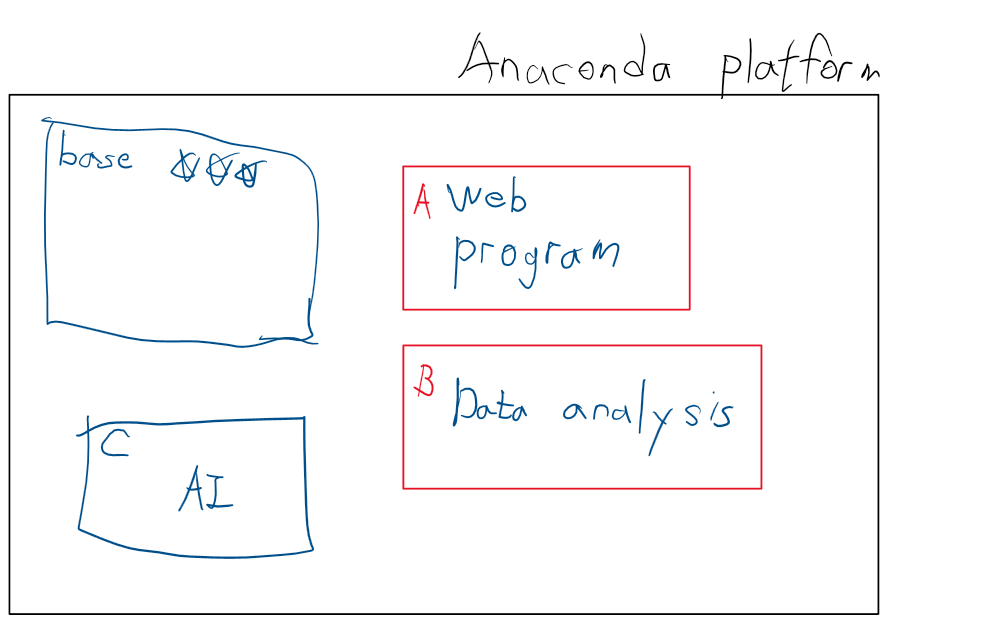 Anaconda platform
base
A Web
program
B Data analysis
C
AI